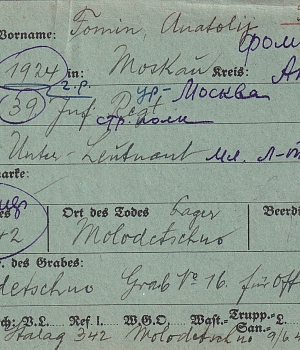 Vorname: Fomin, Anatoly
Фоми
1924 in: Moskau Kreis:
г.р. ур- Москва
39 Inf. Regt
стр. полк
Unter-Leutnant мл. л-т
marke:
es Ort des Todes Lager Beerdi
42 Molodetschno
. des Grabes:
detschno Grab № 16. für Off
ch: V.L. Ref. I. W.G.O. Wast.- Trupp.- San.-
Stalag 342 Molodetschno 9/6.4